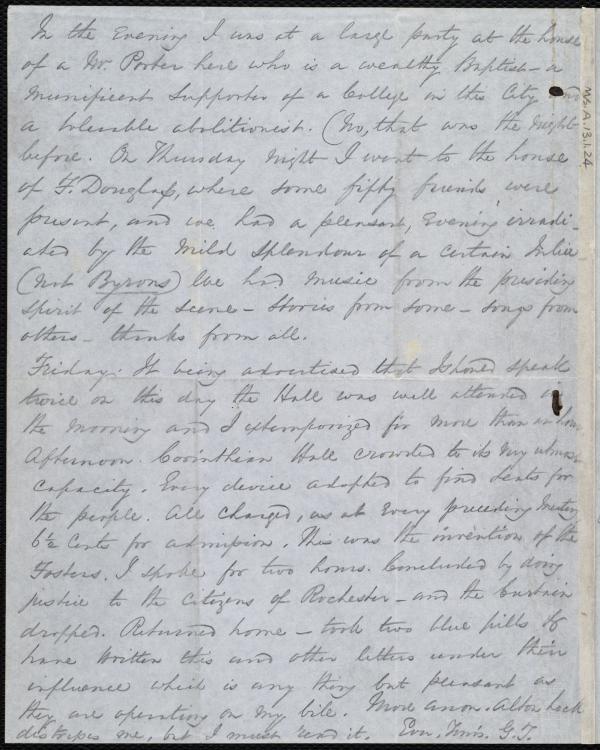 In the Evening I was at a large party at the house
of a Mr. Porter here who is a wealthy Baptist - a
munificent supporter of a College in this City and
a tolerable abolitionist. (No, that was the night
before. On Thursday night I went to the house
of F. Douglass, where some fifty friends were
present, and we had a pleasant, Evening irradi-
ated by the mild splendour of a certain Julia
(not Byrons) We had music from the presiding
spirit of the scene - stories from some - songs from
others - thanks from all.
Friday. It being advertised that I should speak
twice on this day the Hall was well attended in
the morning and I extemporized for more than an hour
Afternoon. Corinthian Hall crowded to its very utmost
capacity. Every device adopted to find seats for
the people. All charged, as at every preceding meeting
6½ Cents for admission. This was the invention of the
Fosters. I spoke for two hours. Concluded by doing
justice to the Citizens of Rochester - and the Curtain
dropped. Returned home - took two blue pills &
have written this and other letters under their
influence which is any thing but pleasant as
they are operating on my bile. More anon.
me, but I must end it. Ever Thine. G.T.
Ms.A.1.3.1.24